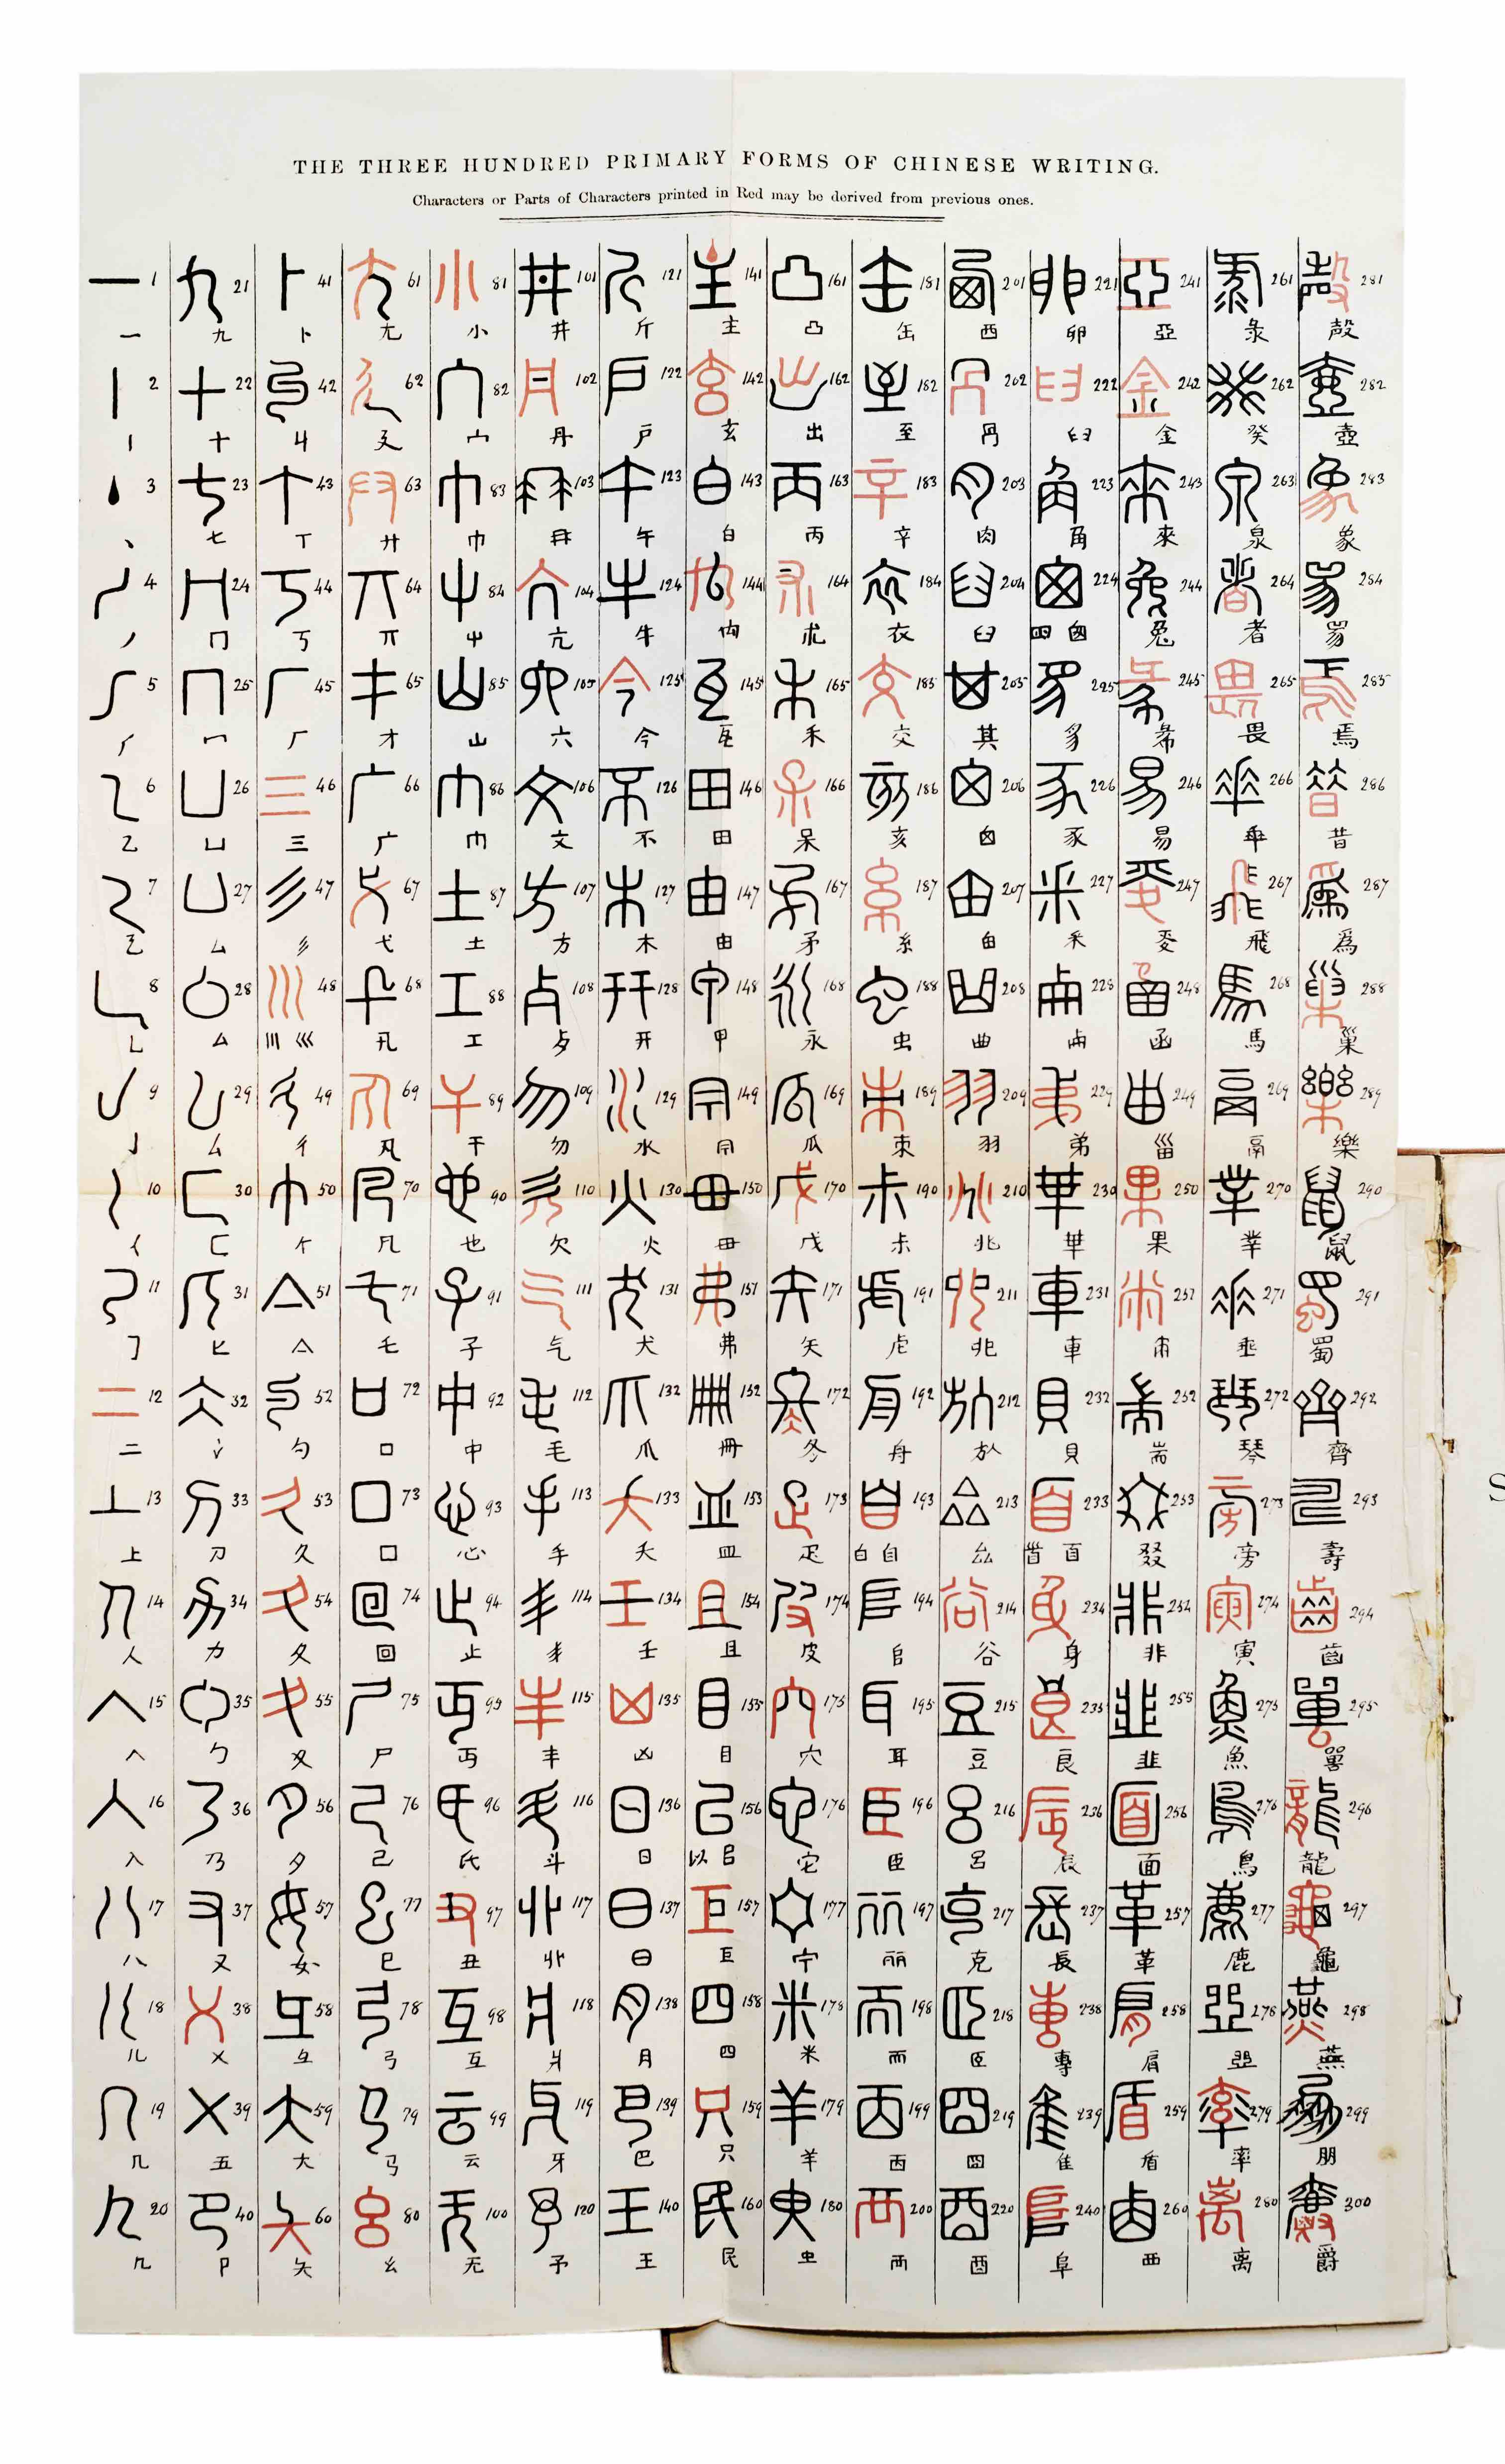 THE THREE HUNDRED PRIMARY FORMS OF CHINESE WRITING.
Characters or Parts of Characters printed in Red may be derived from previous ones.
1 21 41 61 81 101 121 141 161 181 201 221 241 261 281
一 九 卜 尢 小 井 斤 主 凸 缶 卯 亞 彔 殸
2 22 42 62 82 102 122 142 162 182 202 222 242 262 282
丨 十 丩 廴 宀 丹 戶 玄 出 至 金 癸 壺
3 23 43 63 83 103 123 143 163 183 203 223 243 263 283
丶 七 丅 廾 巾 冄 午 白 丙 辛 肉 角 來 泉 象
4 24 44 64 84 104 124 144 164 184 204 224 244 264 284
丿 冂 丂 丌 屮 亢 牛 朮 衣 臼 四 囪 兔 者
5 25 45 65 85 105 125 145 165 185 205 225 245 265 285
冖 厂 才 山 六 今 瓦 禾 交 其 豸 畏 焉
6 26 46 66 86 106 126 146 166 186 206 226 246 266 286
乙 凵 三 广 文 不 田 呆 亥 囟 豕 易 昔
7 27 47 67 87 107 127 147 167 187 207 227 247 267 287
厶 彡 弋 土 方 木 由 矛 糸 甶 釆 飛 爲
8 28 48 68 88 108 128 148 168 188 208 228 248 268 288
乚 厶 川 巛 卂 工 歺 开 甲 永 虫 曲 函 馬 巢
9 29 49 69 89 109 129 149 169 189 209 229 249 269 289
亅 厶 彳 凡 干 勿 水 瓜 朿 羽 弟 甾 鬲 樂
10 30 50 70 90 110 130 150 170 190 210 230 250 270 290
匚 个 也 欠 火 毌 戊 未 兆 果 丵 鼠
11 31 51 71 91 111 131 151 171 191 211 231 251 271 291
匕 亼 乇 子 气 犬 弗 矢 虍 車 朮 垂 蜀
12 32 52 72 92 112 132 152 172 192 212 232 252 272 292
二 勹 口 中 毛 爪 冊 冬 舟 㫃 貝 耑 琴 齊
13 33 53 73 93 113 133 153 173 193 213 233 253 273 293
上 刀 久 囗 心 手 夭 皿 疋 白 自 厽 首 百 叕 旁 壽
14 34 54 74 94 114 134 154 174 194 214 234 254 274 294
人 力 夂 回 止 豸 壬 且 皮 㠯 谷 身 非 寅 齒
15 35 55 75 95 115 135 155 175 195 215 235 255 275 295
勹 夊 尸 丏 丰 凶 目 穴 耳 豆 良 韭 魚
16 36 56 76 96 116 136 156 176 196 216 236 256 276 296
入 乃 夕 己 氏 斗 日 以 㠯 它 臣 呂 辰 面 鳥 龍
17 37 57 77 97 117 137 157 177 197 217 237 257 277 297
八 又 女 巳 丑 曰 巨 宁 丽 克 長 革 鹿 龜
18 38 58 78 98 118 138 158 178 198 218 238 258 278 298
儿 乂 彑 弓 互 爿 月 四 米 而 專 肩 燕
19 39 59 79 99 119 139 159 179 199 219 239 259 279 299
几 五 大 云 牙 巴 只 羊 西 囧 隹 盾 率 朋
20 40 60 80 100 120 140 160 180 200 220 240 260 280 300
几 卩 矢 幺 无 予 王 民 兩 酉 阜 鹵 离 爵